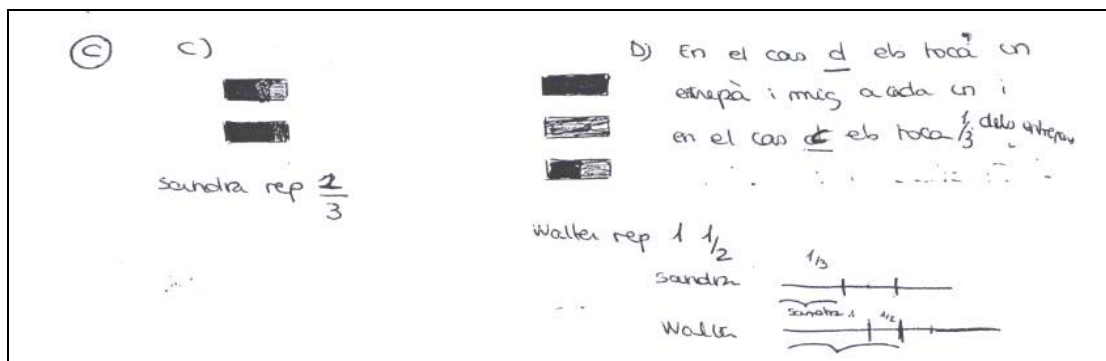 C C)
Sandra rep 2/3
D) En el cas d els toca un
entrepà i mig a cada un i
en el cas c els toca 1/3 dels entrepans
Walter rep 1 1/2
1/3
Sandra
Sandra 1 1/2
Walter